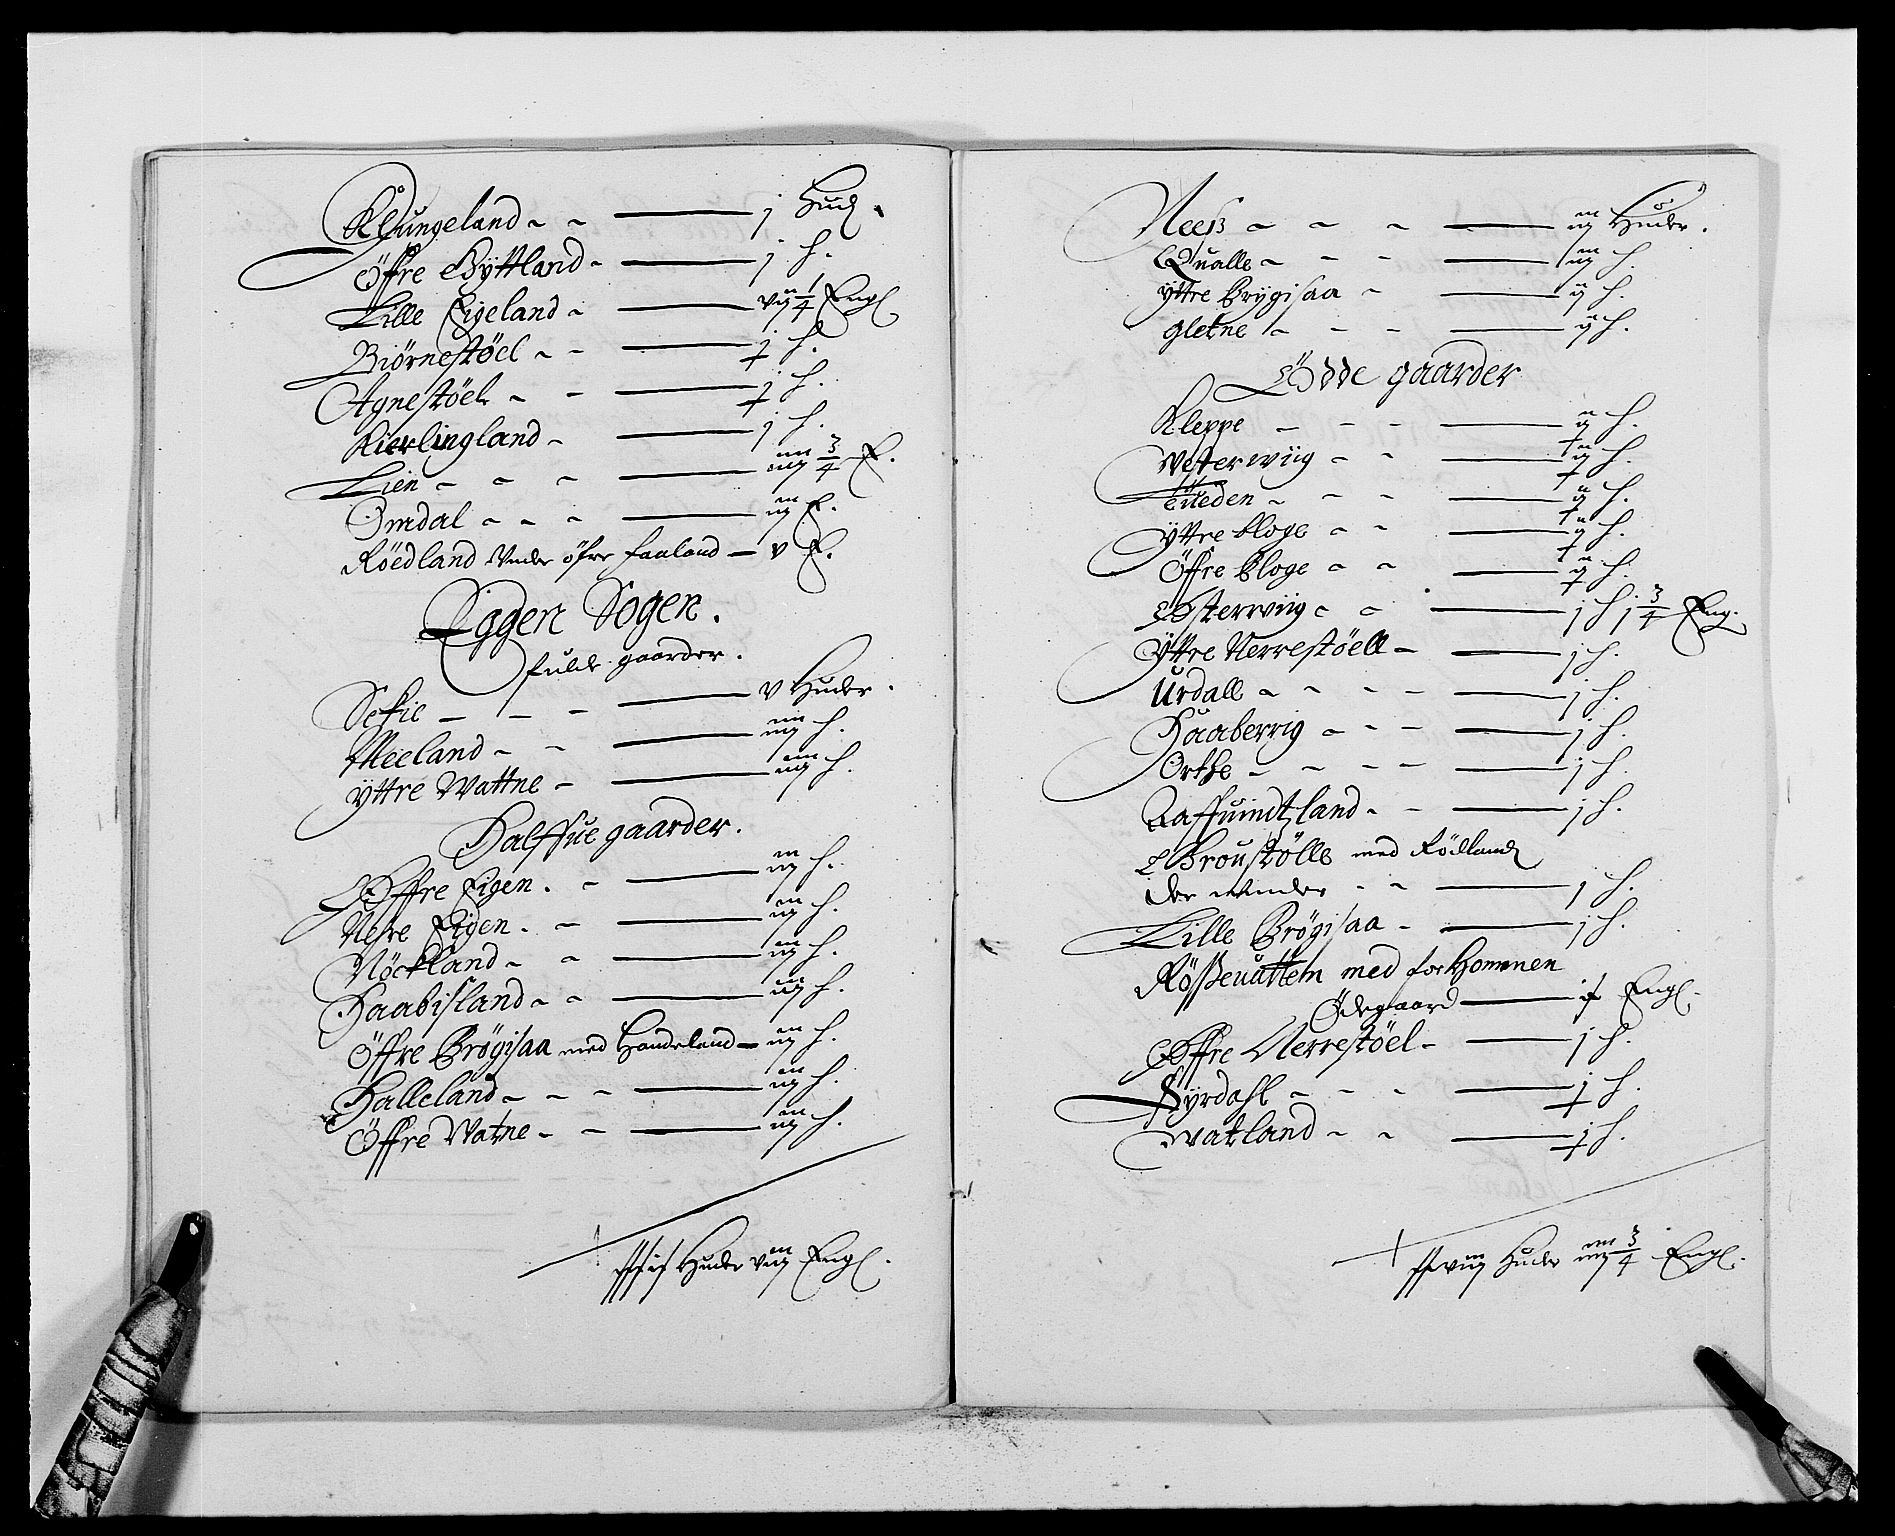 Klungeland - - j Hud.
Öffre Byttland - j h.
Lille Eigeland - vij 1/4 Engl
Biörnestöel - - j h.
Agnestöel - - j h.
Kierlingland - j h.
Lien - - - iiij 3/4 E.
Omdal - - - iij E.
Röedland Under öfre faaland - v E.
Eggen Sogen.
fulde gaarder.
Sefie - - - v Huder.
Meeland - - iiij h.
Yttre Wattne - iiij h.
Halffue gaarder.
Öffre Eigen. - iij h.
Nefre Eigen. - iij h.
Nöckland - - iij h.
Haabisland - - iij h.
Öffre Brögisaa med Handeland - iij h.
Halleland - - - iij h.
Öffre Watne - - iij h.
Huder viij Engl.
Neeß - - - iij Huder.
Qualle - - - iij h.
Yttre Brygisaa - ij h.
Gletne - - - ij h.
Ödde gaarder
Kleppe - - - ij h.
Vesterwiig - - ij h.
Lueden - - - ij h.
Yttre Kloge - - ij h.
Öffre Kloge - - ij h.
Österwiig - - j h j 3/4 Eng.
Yttre Nerrestöell - j h.
Urdall - - - - j h.
Haaberrig - - - j h.
Orthe - - - - j h.
Raffuindtzland - - j h.
Broustölle med Rödland
der under - - j h.
Lille Brögisaa - j h.
Rößeuattem med for Hommen
Ödegaard Engl.
Öffre Nerrestöel - j h.
Fyrdahl - - - j h.
Watland - - j h.
Huder iiij 3/4 Engl.